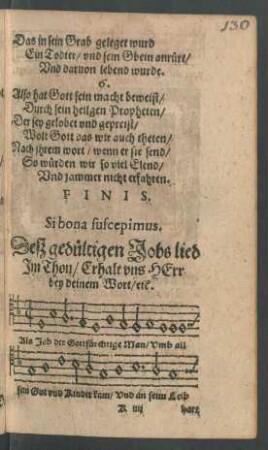 130
Das in sein Grab geleget wurd
Ein Todter/ vnd sein Gbein anrürt/
Vnd daruon lebend wurde.
6.
Also hat Gott sein macht beweist/
Durch sein heilgen Propheten/
Der sey gelobet vnd gepreist/
Wolt Gott das wir auch theten/
Nach jhrem wort/ wenn er sie send/
So würden wir so viel Elend/
Vnd jammer nicht erfahren.
FINIS.
Si bona suscepimus.
Deß gedültigen Jobs lied
Im Thon/ Erhalt vns HErr
bey deinem Wort/etc.
Als Job der Gottfürchtige Man/ Vmb all
sein Gut vnd Kinder kam/ Vnd an seim Leib
R iiij hart